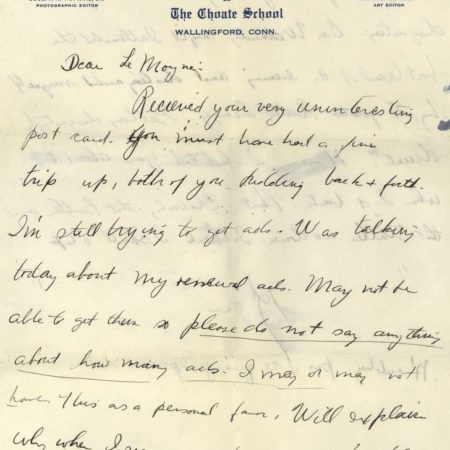 PHOTOGRAPHIC EDITOR
ART EDITOR
The Choate School
WALLINGFORD, CONN.
Dear Le Moyne:-
Recieved your very uninteresting
post card. You must have had a fine
trip up, both of you fiddling back + forth.
I'm still trying to get ads. Was talking
today about my renewal ads. May not be
able to get them so please do not say anything
about how many ads. I may or may not
have. This as a personal favor, Will explain
why when I